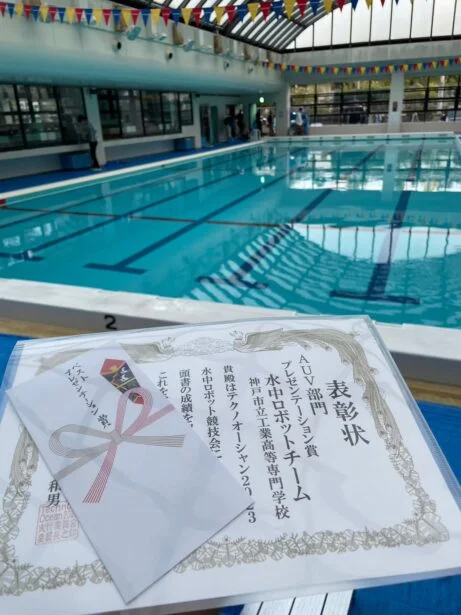 表彰状
AUV部門
プレゼンテーション賞
水中ロボットチーム
神戸市立工業高等専門学校
貴殿はテクノオーシャン2023
水中ロボット競技会に
頭書の成績を
これを
和男
ベスト
プレゼンテーション賞
2